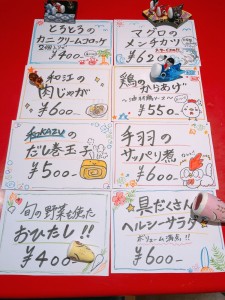 とろとろの
カニクリームコロッケ
2個入り
¥400-
マグロの
メンチカツ
¥620-
和江の
肉じゃが
¥600-
鶏の
からあげ
¥550-
KAKAZUの
だし巻玉子
¥500-
手羽の
サッパリ煮
¥600-
旬の野菜を使た
おひたし!!
¥400-
具だくさん
ヘルシーサラダ
ボリューム満点!!
¥600-